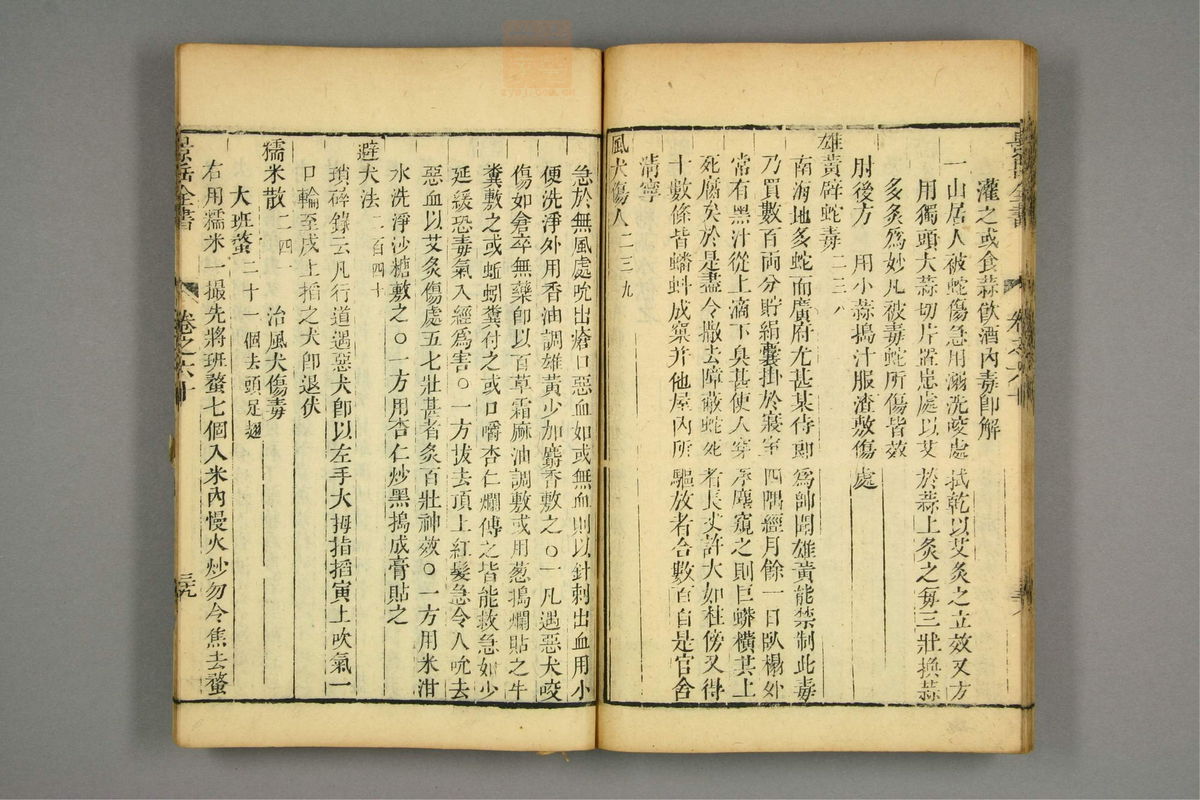 灌之或食蒜飲酒內毒卽解
一山居人被蛇傷急用溺洗咬處拭乾以艾灸之立效又方
用獨頭大蒜切片置患處以艾於蒜上灸之每三壯換蒜
多灸爲妙凡被毒蛇所傷皆效
肘後方　用小蒜搗汁服渣敷傷處
雄黃辟蛇毒二三八
南海地多蛇而廣府尤甚某侍郎爲帥聞雄黃能禁制此毒
乃買數百兩分貯絹囊掛於寢室四隅經月餘一日臥榻外
常有黑汁從上滴下臭甚使人穿承塵窺之則巨蟒橫其上
死腐矣於是盡令撤去障蔽蛇死者長丈許大如柱傍又得
十數條皆蟠蚪成窠并他屋內所驅放者合數百自是官舍
淸寧
風犬傷人二三九
急於無風處吮出瘡口惡血如或無血則以針刺出血用小
便洗淨外用香油調雄黃少加麝香敷之○一凡遇惡犬咬
傷如倉卒無藥卽以百草霜麻油調敷或用葱搗爛貼之牛
糞敷之或蚯蚓糞付之或口嚼杏仁爛傅之皆能救急如少
延緩恐毒氣入經爲害○一方拔去頂上紅髮急令人吮去
惡血以艾灸傷處五七壯甚者灸百壯神效○一方用米泔
水洗淨沙糖敷之○一方用杏仁炒黑搗成膏貼之
避犬法二百四十
瑣碎錄云凡行道遇惡犬卽以左手大拇指掐寅上吹氣一
口輪至戌上掐之犬卽退伏
糯米散二四一　治風犬傷毒
大班蝥二十一個去頭足翅
右用糯米一撮先將班蝥七個入米內慢火炒勿令焦去蝥
景岳全書
卷之六十
三九